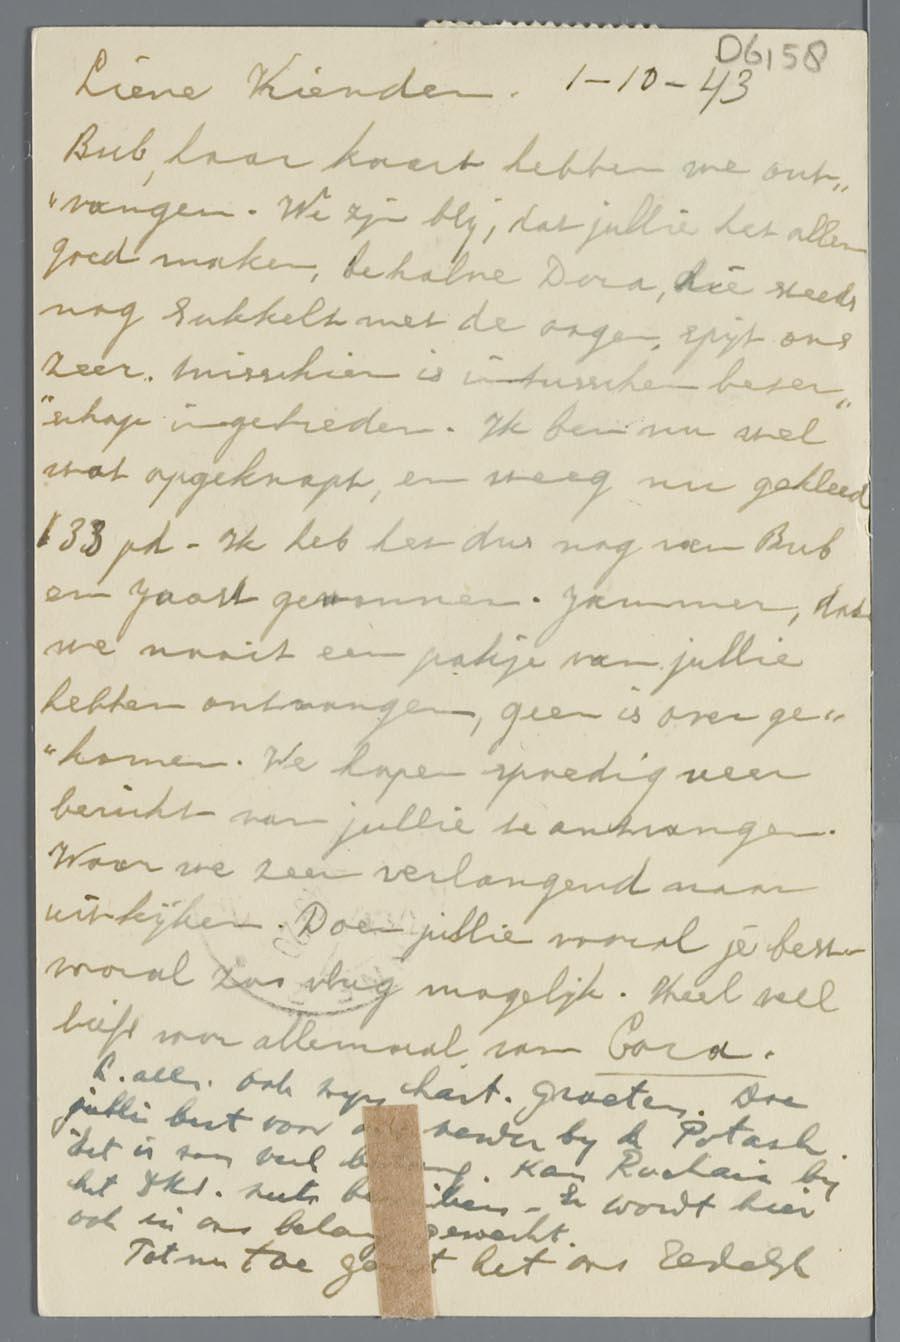 D6158
Liene Kienden. 1-10-43
Bub, haar kaart hebben we ont„
"vangen. We zijn blij, dat jullie het allen
goed maken, behalve Dora, die steeds
nog sukkelt met de oogen, spijt ons
zeer. Misschien is intusschen beter„
"schap ingetreden. Ik ben nu wel
wat opgeknapt, en weeg nu gekleed
133 pd - Ik heb het dus nog van Bub
en Joost gewonnen. Jammer, dat
we nooit een pakje van jullie
hebben ontvangen, geen is over ge„
"komen. We hopen spoedig weer
bericht van jullie te ontvangen.
Waar we zeer verlangend naar
uitkijken. Doen jullie vooral je best
vooral zoo vlug mogelijk. Heel veel
liefs voor allemaal van Cora.
L. all. ook mijn hart. groeten. Doe
jullie best voor verder by Potash
dat is van veel Kan Rochain by
het Er wordt hier
ook in ons belang gewerkt.
Tot nu toe gaat het ons redelijk